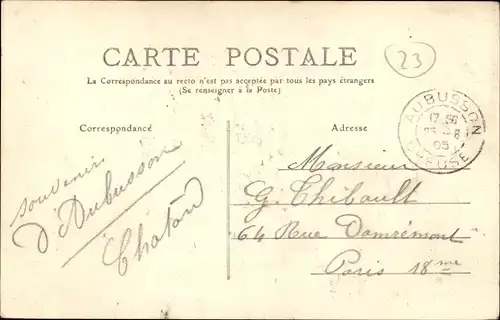 CARTE POSTALE
23
La Correspondance au recto n'est pas acceptée par tous les pays étrangers
(Se renseigner à la Poste)
Correspondance
Adresse
AUBUSSON
05
CREUSE
souvenir
D'Aubusson
Monsieur
G. Thibault
64 Rue Damrémont
Paris 18me